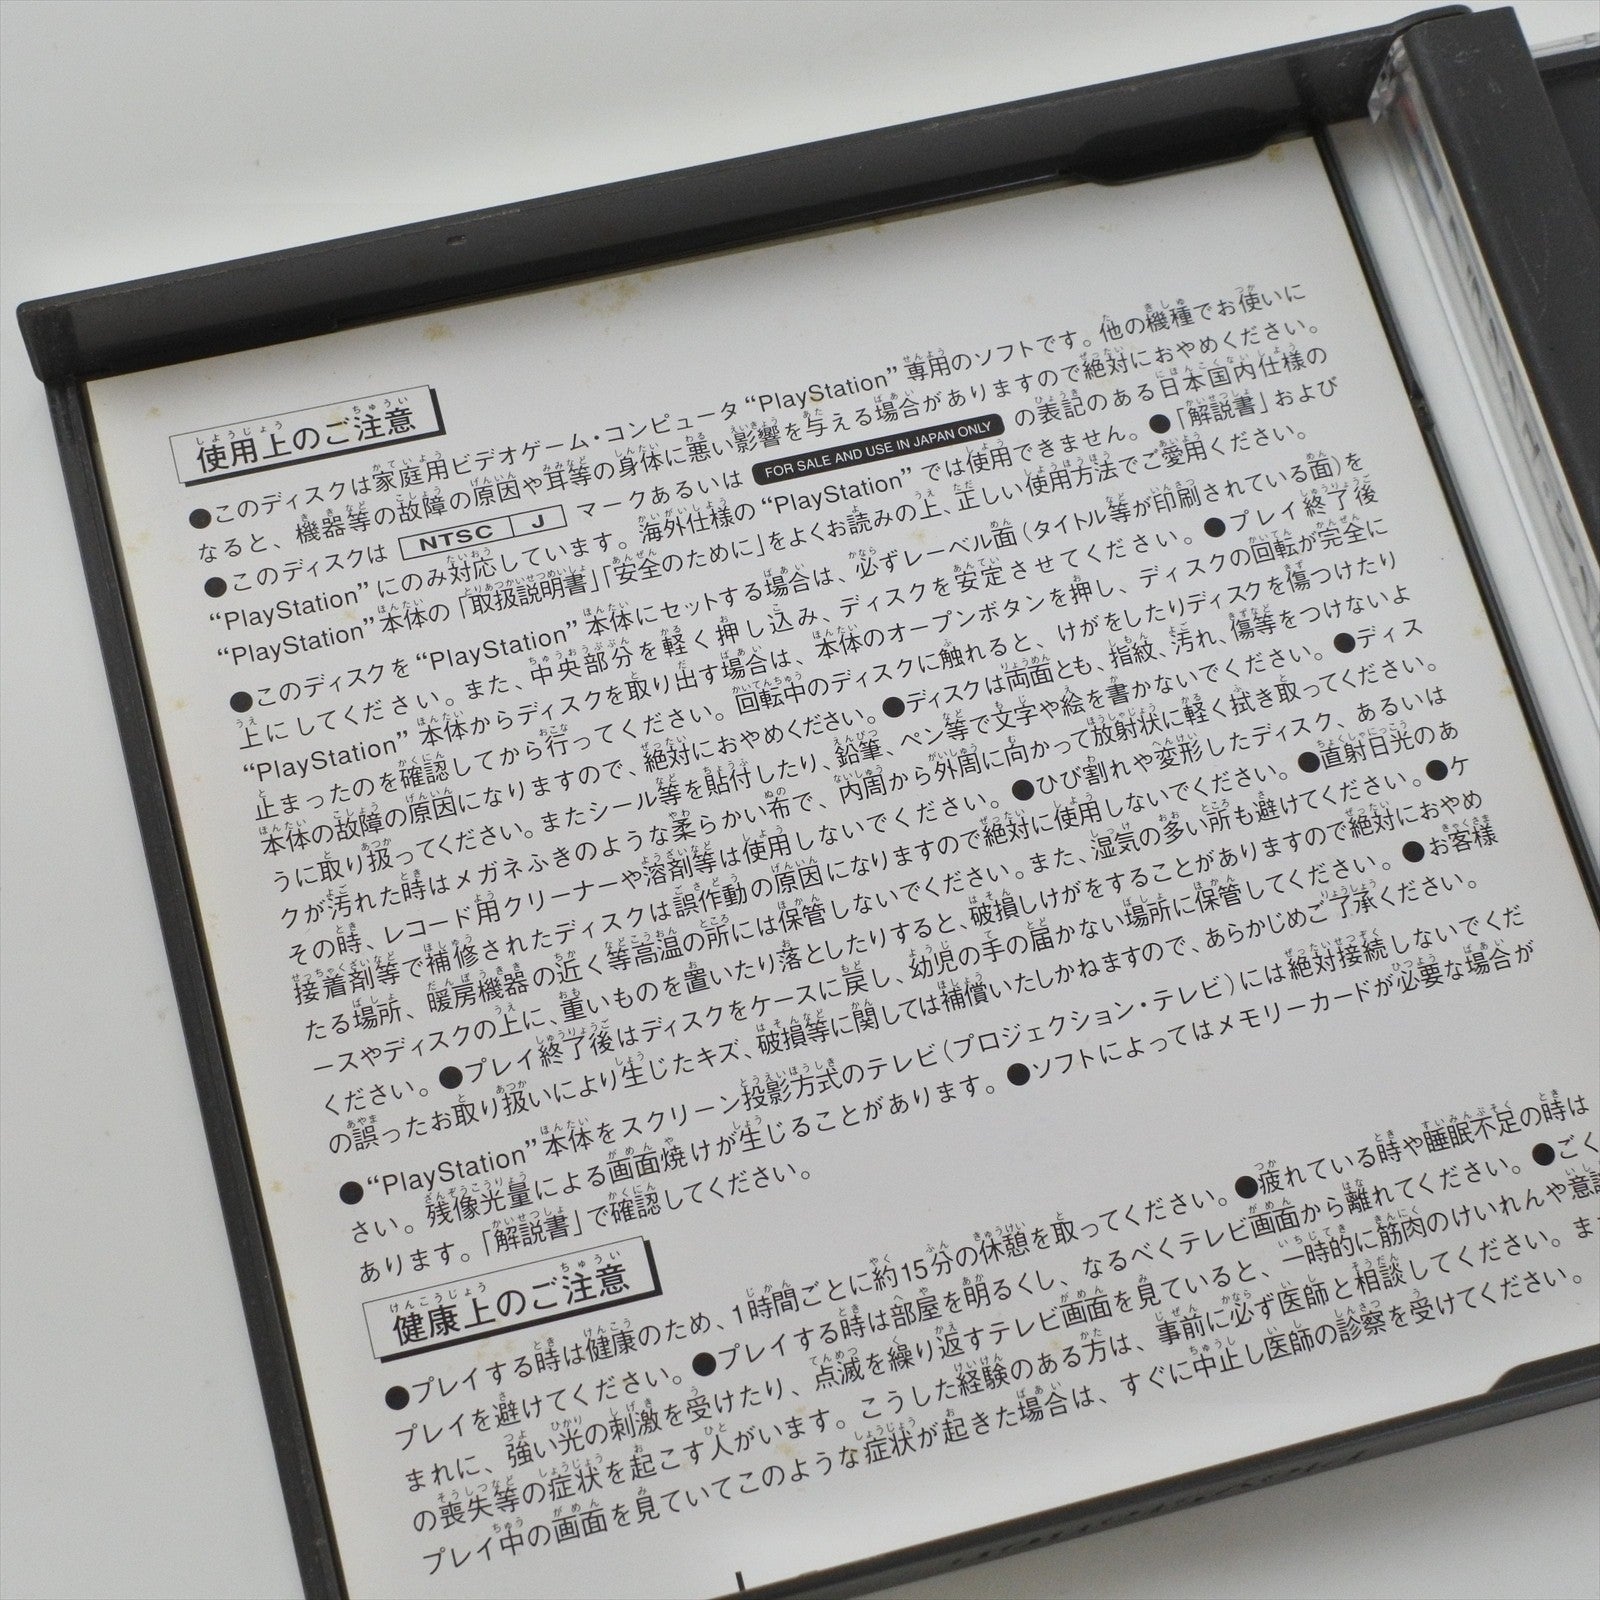 使用上のご注意
●このディスクは家庭用ビデオゲーム・コンピュータ“PlayStation”専用のソフトです。他の機種でお使いに
なると、機器等の故障の原因や耳等の身体に悪い影響を与える場合がありますので絶対におやめください。
●このディスクは NTSC J マークあるいは FOR SALE AND USE IN JAPAN ONLY の表記のある日本国内仕様の
“PlayStation”にのみ対応しています。海外仕様の“PlayStation”では使用できません。●「解説書」および
“PlayStation”本体の「取扱説明書」「安全のために」をよくお読みの上、正しい使用方法でご愛用ください。
●このディスクを“PlayStation”本体にセットする場合は、必ずレーベル面(タイトル等が印刷されている面)を
上にしてください。また、中央部分を軽く押し込み、ディスクを安定させてください。●プレイ終了後
“PlayStation”本体からディスクを取り出す場合は、本体のオープンボタンを押し、ディスクの回転が完全に
止まったのを確認してから行ってください。回転中のディスクに触れると、けがをしたりディスクを傷つけたり
本体の故障の原因になりますので、絶対におやめください。●ディスクは両面とも、指紋、汚れ、傷等をつけないよ
うに取り扱ってください。またシール等を貼付したり、鉛筆、ペン等で文字や絵を書かないでください。●ディス
クが汚れた時はメガネふきのような柔らかい布で、内周から外周に向かって放射状に軽く拭き取ってください。
その時、レコード用クリーナーや溶剤等は使用しないでください。●ひび割れや変形したディスク、あるいは
接着剤等で補修されたディスクは誤作動の原因になりますので絶対に使用しないでください。●直射日光のあ
たる場所、暖房機器の近く等高温の所には保管しないでください。また、湿気の多い所も避けてください。●ケ
ースやディスクの上に、重いものを置いたり落としたりすると、破損しけがをすることがありますので絶対におやめ
ください。●プレイ終了後はディスクをケースに戻し、幼児の手の届かない場所に保管してください。●お客様
の誤ったお取り扱いにより生じたキズ、破損等に関しては補償いたしかねますので、あらかじめご了承ください。
●“PlayStation”本体をスクリーン投影方式のテレビ(プロジェクション・テレビ)には絶対接続しないでくだ
さい。残像光量による画面焼けが生じることがあります。●ソフトによってはメモリーカードが必要な場合が
あります。「解説書」で確認してください。
健康上のご注意
●プレイする時は健康のため、1時間ごとに約15分の休憩を取ってください。●疲れている時や睡眠不足の時は
プレイを避けてください。●プレイする時は部屋を明るくし、なるべくテレビ画面から離れてください。●ごく
まれに、強い光の刺激を受けたり、点滅を繰り返すテレビ画面を見ていると、一時的に筋肉のけいれんや意識
の喪失等の症状を起こす人がいます。こうした経験のある方は、事前に必ず医師と相談してください。また
プレイ中の画面を見ていてこのような症状が起きた場合は、すぐに中止し医師の診察を受けてください。